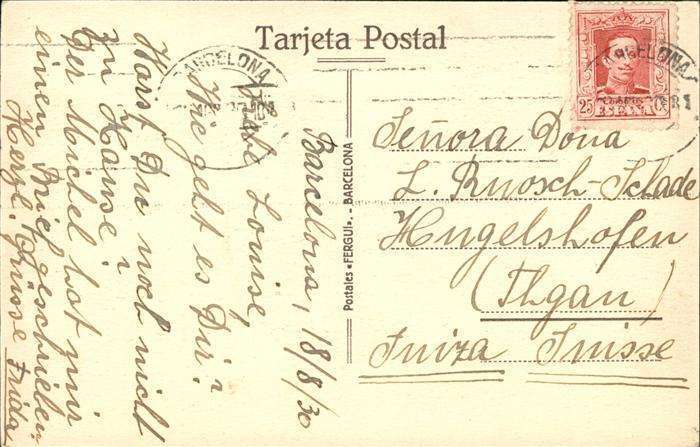 Tarjeta Postal
BARCELONA
BARCELONA
25 CENTMOS
ESPAÑA
Postales «FERGUI». - BARCELONA
Barcelona, 18/8/30
Liebe Louise,
Wie geht es Dir?
Horst Du noch nicht
zu Hause?
Der Michel hat mir
einen Brief geschrieben
Herzl. Grüsse Frida
Señora Dona
L. Ruosch-Schade
Hugelshofen
(Thgau)
Suiza Suisse